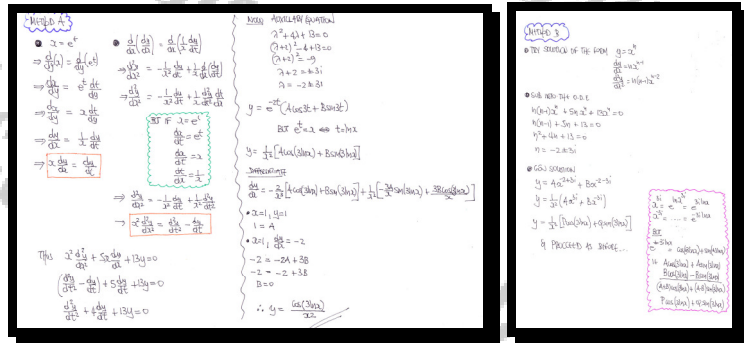 METHOD A
x = e^t
⇒ d/dy(x) = d/dy(e^t)
⇒ dx/dy = e^t dt/dy
⇒ dx/dy = x dt/dy
⇒ dy/dx = 1/x dy/dt
⇒ x dy/dx = dy/dt
d/dx(dy/dx) = d/dx(1/x dy/dt)
⇒ d²y/dx² = -1/x² dy/dt + 1/x d/dx(dy/dt)
⇒ d²y/dx² = -1/x² dy/dt + 1/x d²y/dt² dt/dx
BUT IF x = e^t
dx/dt = e^t
dx/dt = x
dt/dx = 1/x
⇒ d²y/dx² = -1/x² dy/dt + 1/x² d²y/dt²
⇒ x² d²y/dx² = d²y/dt² - dy/dt
THUS x² d²y/dx² + 5x dy/dx + 13y = 0
(d²y/dt² - dy/dt) + 5 dy/dt + 13y = 0
d²y/dt² + 4 dy/dt + 13y = 0
NOW AUXILIARY EQUATION
λ² + 4λ + 13 = 0
(λ+2)² - 4 + 13 = 0
(λ+2)² = -9
λ + 2 = ±3i
λ = -2 ± 3i
y = e^-2t (A cos3t + B sin3t)
BUT e^t = x ⟺ t = lnx
y = 1/x² [A cos(3lnx) + B sin(3lnx)]
DIFFERENTIATE
dy/dx = -2/x³ [A cos(3lnx) + B sin(3lnx)] + 1/x² [-3A/x sin(3lnx) + 3B cos(3lnx)/x]
• x=1, y=1
1 = A
• x=1, dy/dx = -2
-2 = -2A + 3B
-2 = -2 + 3B
B = 0
∴ y = cos(3lnx)/x²
METHOD B
TRY SOLUTION OF THE FORM y = x^n
dy/dx = nx^n-1
d²y/dx² = n(n-1)x^n-2
SUB INTO THE O.D.E
n(n-1)x^n + 5nx^n + 13x^n = 0
n(n-1) + 5n + 13 = 0
n² + 4n + 13 = 0
n = -2 ± 3i
GEN SOLUTION
y = Ax^-2+3i + Bx^-2-3i
y = 1/x² (Ax^3i + Bx^-3i)
y = 1/x² [P cos(3lnx) + Q sin(3lnx)]
& PROCEED AS BEFORE...
x^3i = e^lnx^3i = e^3ilnx
x^-3i = ... = e^-3ilnx
BUT